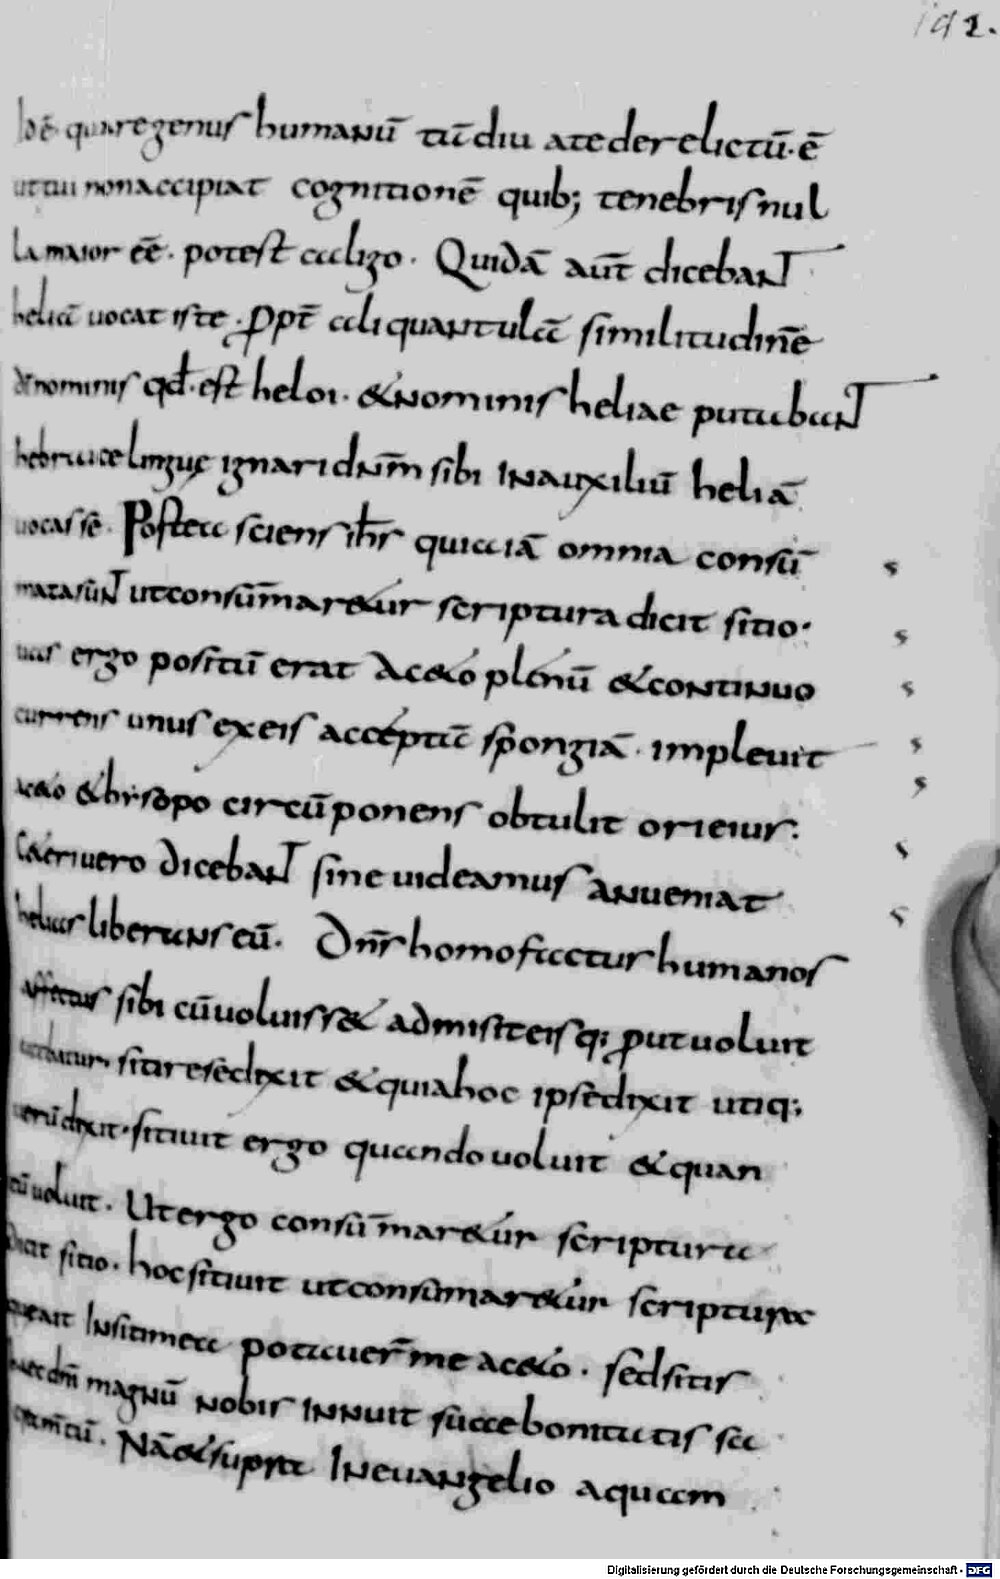 192.
quare genus humanū tādiu a te derelictū· ē
ut tui non accipiat cognitionē quib; tenebris nul
la maior eē· potest caligo· Quidā aūt dicebant
heliā uocat iste· ꝓpt̄ aliquantulā similitudinē
nominis qd̄· est heloi· & nominis heliae putabant
hebraice linguę ignari dn̄m sibi in auxiliū heliā
uocasse· Postea sciens ih̄s quia iā omnia consū
mata sūnt ut consūmar&ur scriptura dicit sitio·
uas ergo positū erat ac&o plenū & continuo
currens unus ex eis acceptā spongiā· impleuit
ac&o & hisopo circūponens obtulit ori eius·
Cæteri uero dicebant sine uideamus an ueniat
helias liberans eū· Dn̄s homo factus humanos
affectus sibi cū uoluiss& admisit eisq; ꝓut uoluit
sitire se dixit & quia hoc ipse dixit utiq;
uerū dixit· sitiuit ergo quando uoluit & quan
tū uoluit· Ut ergo consūmar&ur scriptura
dicit sitio· hoc sitiuit ut consūmar&ur scriptura
que ait In siti mea potauer̄ me ac&o· sed sitis
haec dn̄i magnū nobis innuit suae bonitatis sa
Nā & supra In euangelio aquam
Digitalisierung gefördert durch die Deutsche Forschungsgemeinschaft - DFG